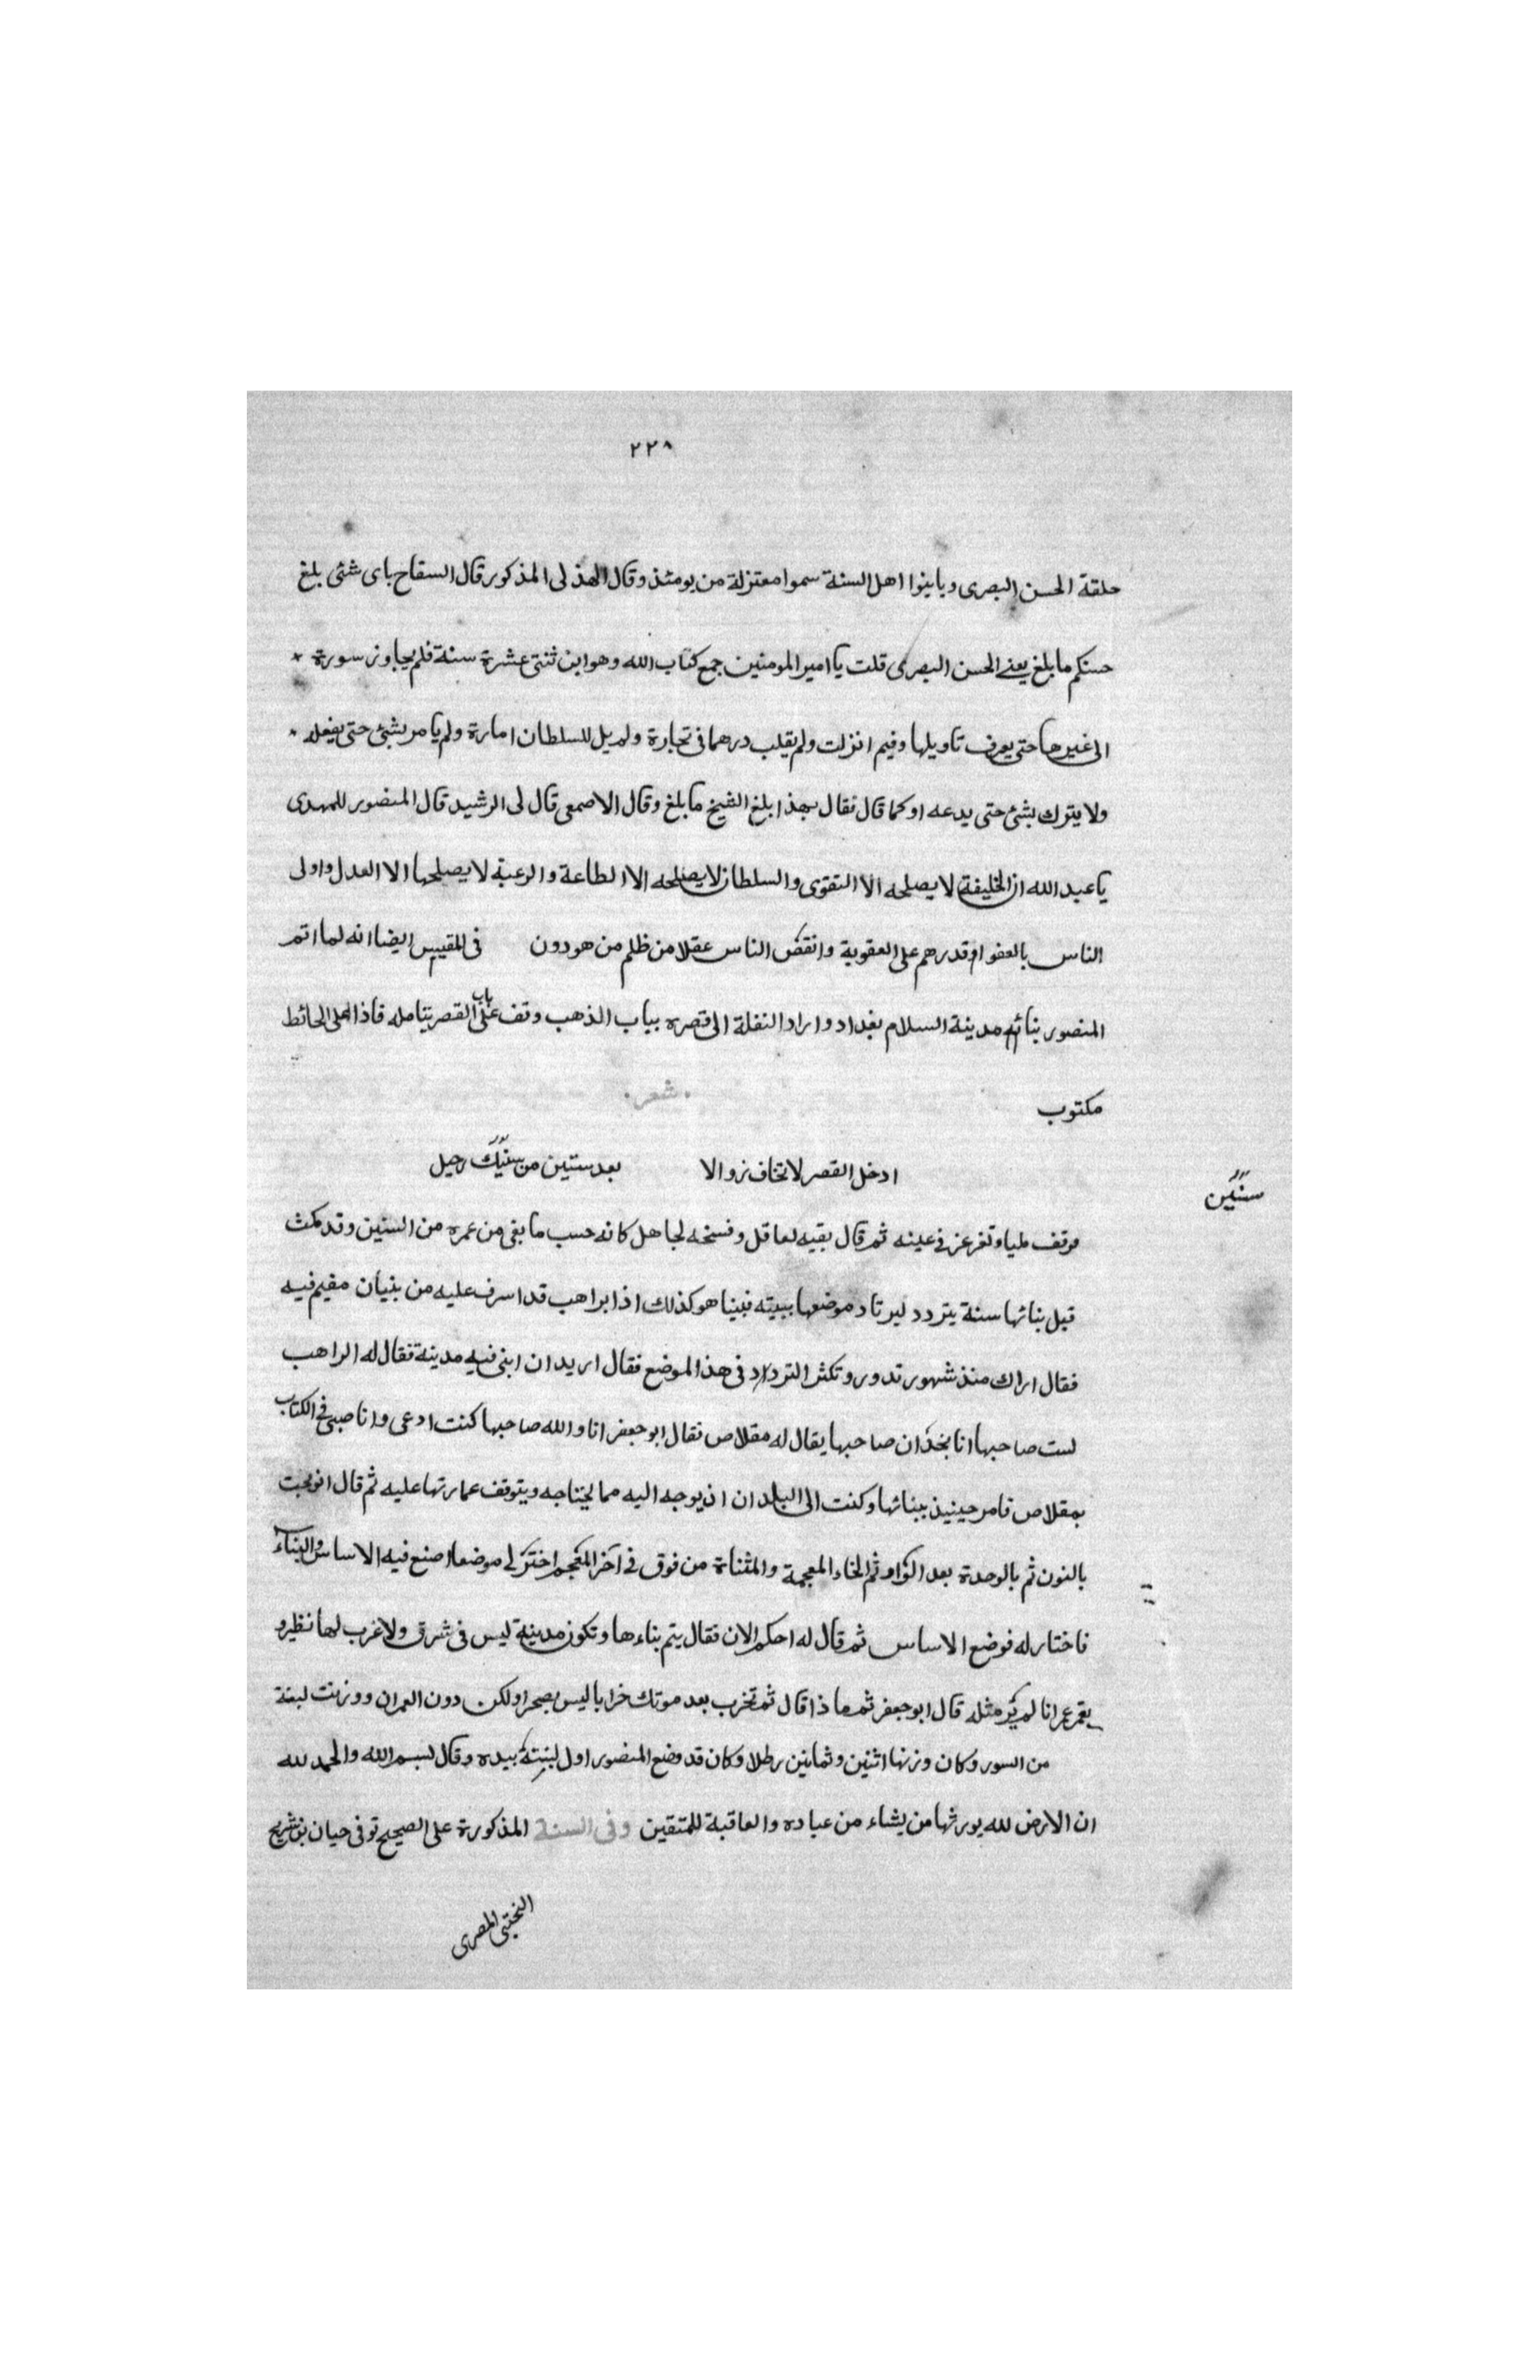 ٢٢٨
حلقة الحسن البصرى وباينوا اهل السنة سموا معتزلة من يومئذ وقال الهذلى المذكور قال السفاح باى شئى بلغ
حسنكم ما بلغ يعنے الحسن البصرى قلت يا امير المومنين جمع كتاب الله وهو ابن ثنتى عشرة سنة فلم يجاوز سورة
الى غيرها حتى يعرف تاويلها وفيم انزلت ولم يقلب درهما فى تجارة ولم يل للسلطان امارة ولم يا مر بشئ حتى يفعله
ولا يترك بشئ حتى يدعه او كما قال فقال بهذا بلغ الشيخ ما بلغ وقال الاصمعى قال لى الرشيد قال المنصور للمهدى
يا عبد الله ان الخليفة لا يصلحه الا التقوى والسلطان لا يصلحه الا الطاعة والرعية لا يصلحها الا العدل واولى
الناس بالعفو اقدرهم على العقوبة وانقص الناس عقلا من ظلم من هو دون فى المقيبس ايضا انه لما اتم
المنصور بنائه مدينة السلام بغداد واراد النقلة الى قصره بباب الذهب وقف على باب القصر يتامله فاذا على الحائط
مكتوب شعر
ادخل القصر لا تخاف زوالا بعد ستين من سنيك رحيل
سنين
فوقف مليا وتغرغر فے عينه ثم قال بقيه لعاقل وفسخه لجاهل كانه حسب ما بقى من عمره من السنين وقد مكث
قبل بنائها سنة يتردد ليرتاد موضعها ببيته فبينا هو كذلك اذا براهب قد اسرف عليه من بنيان مقيم فيه
فقال اراك منذ شهور تدور وتكثر الترداد فى هذا الموضع فقال اريد ان ابنى فيه مدينة فقال له الراهب
لست صاحبها انا نجد ان صاحبها يقال له مقلاص فقال ابو جعفر انا والله صاحبها كنت ادعى وانا صبى فے الكتاب
بمقلاص فامر حينيذ ببنائها وكنت الى البلدان ان يوجه اليه مما يحتاجه ويتوقف عمارتها عليه ثم قال انوبخت
بالنون ثم بالوحدة بعد الواو ثم الخاء المعجمة والمثناة من فوق فى آخر المنجم اختر لى موضعا اصنع فيه الاساس والبناء
فاختار له فوضع الاساس ثم قال له احكم الان فقال يتم بناءها وتكون مدينة ليس فى شرق ولا غرب لها نظير و
يعمر عمرانا لم ير مثله قال ابو جعفر ثم ما ذا قال ثم تخرب بعد موتك خرابا ليس بصحرا ولكن دون العمران ووزنت لبنة
من السور وكان وزنها اثنين وثمانين رطلا وكان قد وضع المنصور اول لبنة بيده وقال بسم الله والحمد لله
ان الارض لله يورثها من يشاء من عباده والعاقبة للمتقين وفى السنة المذكورة على الصحيح توفى حيان بن شريح
المصرى